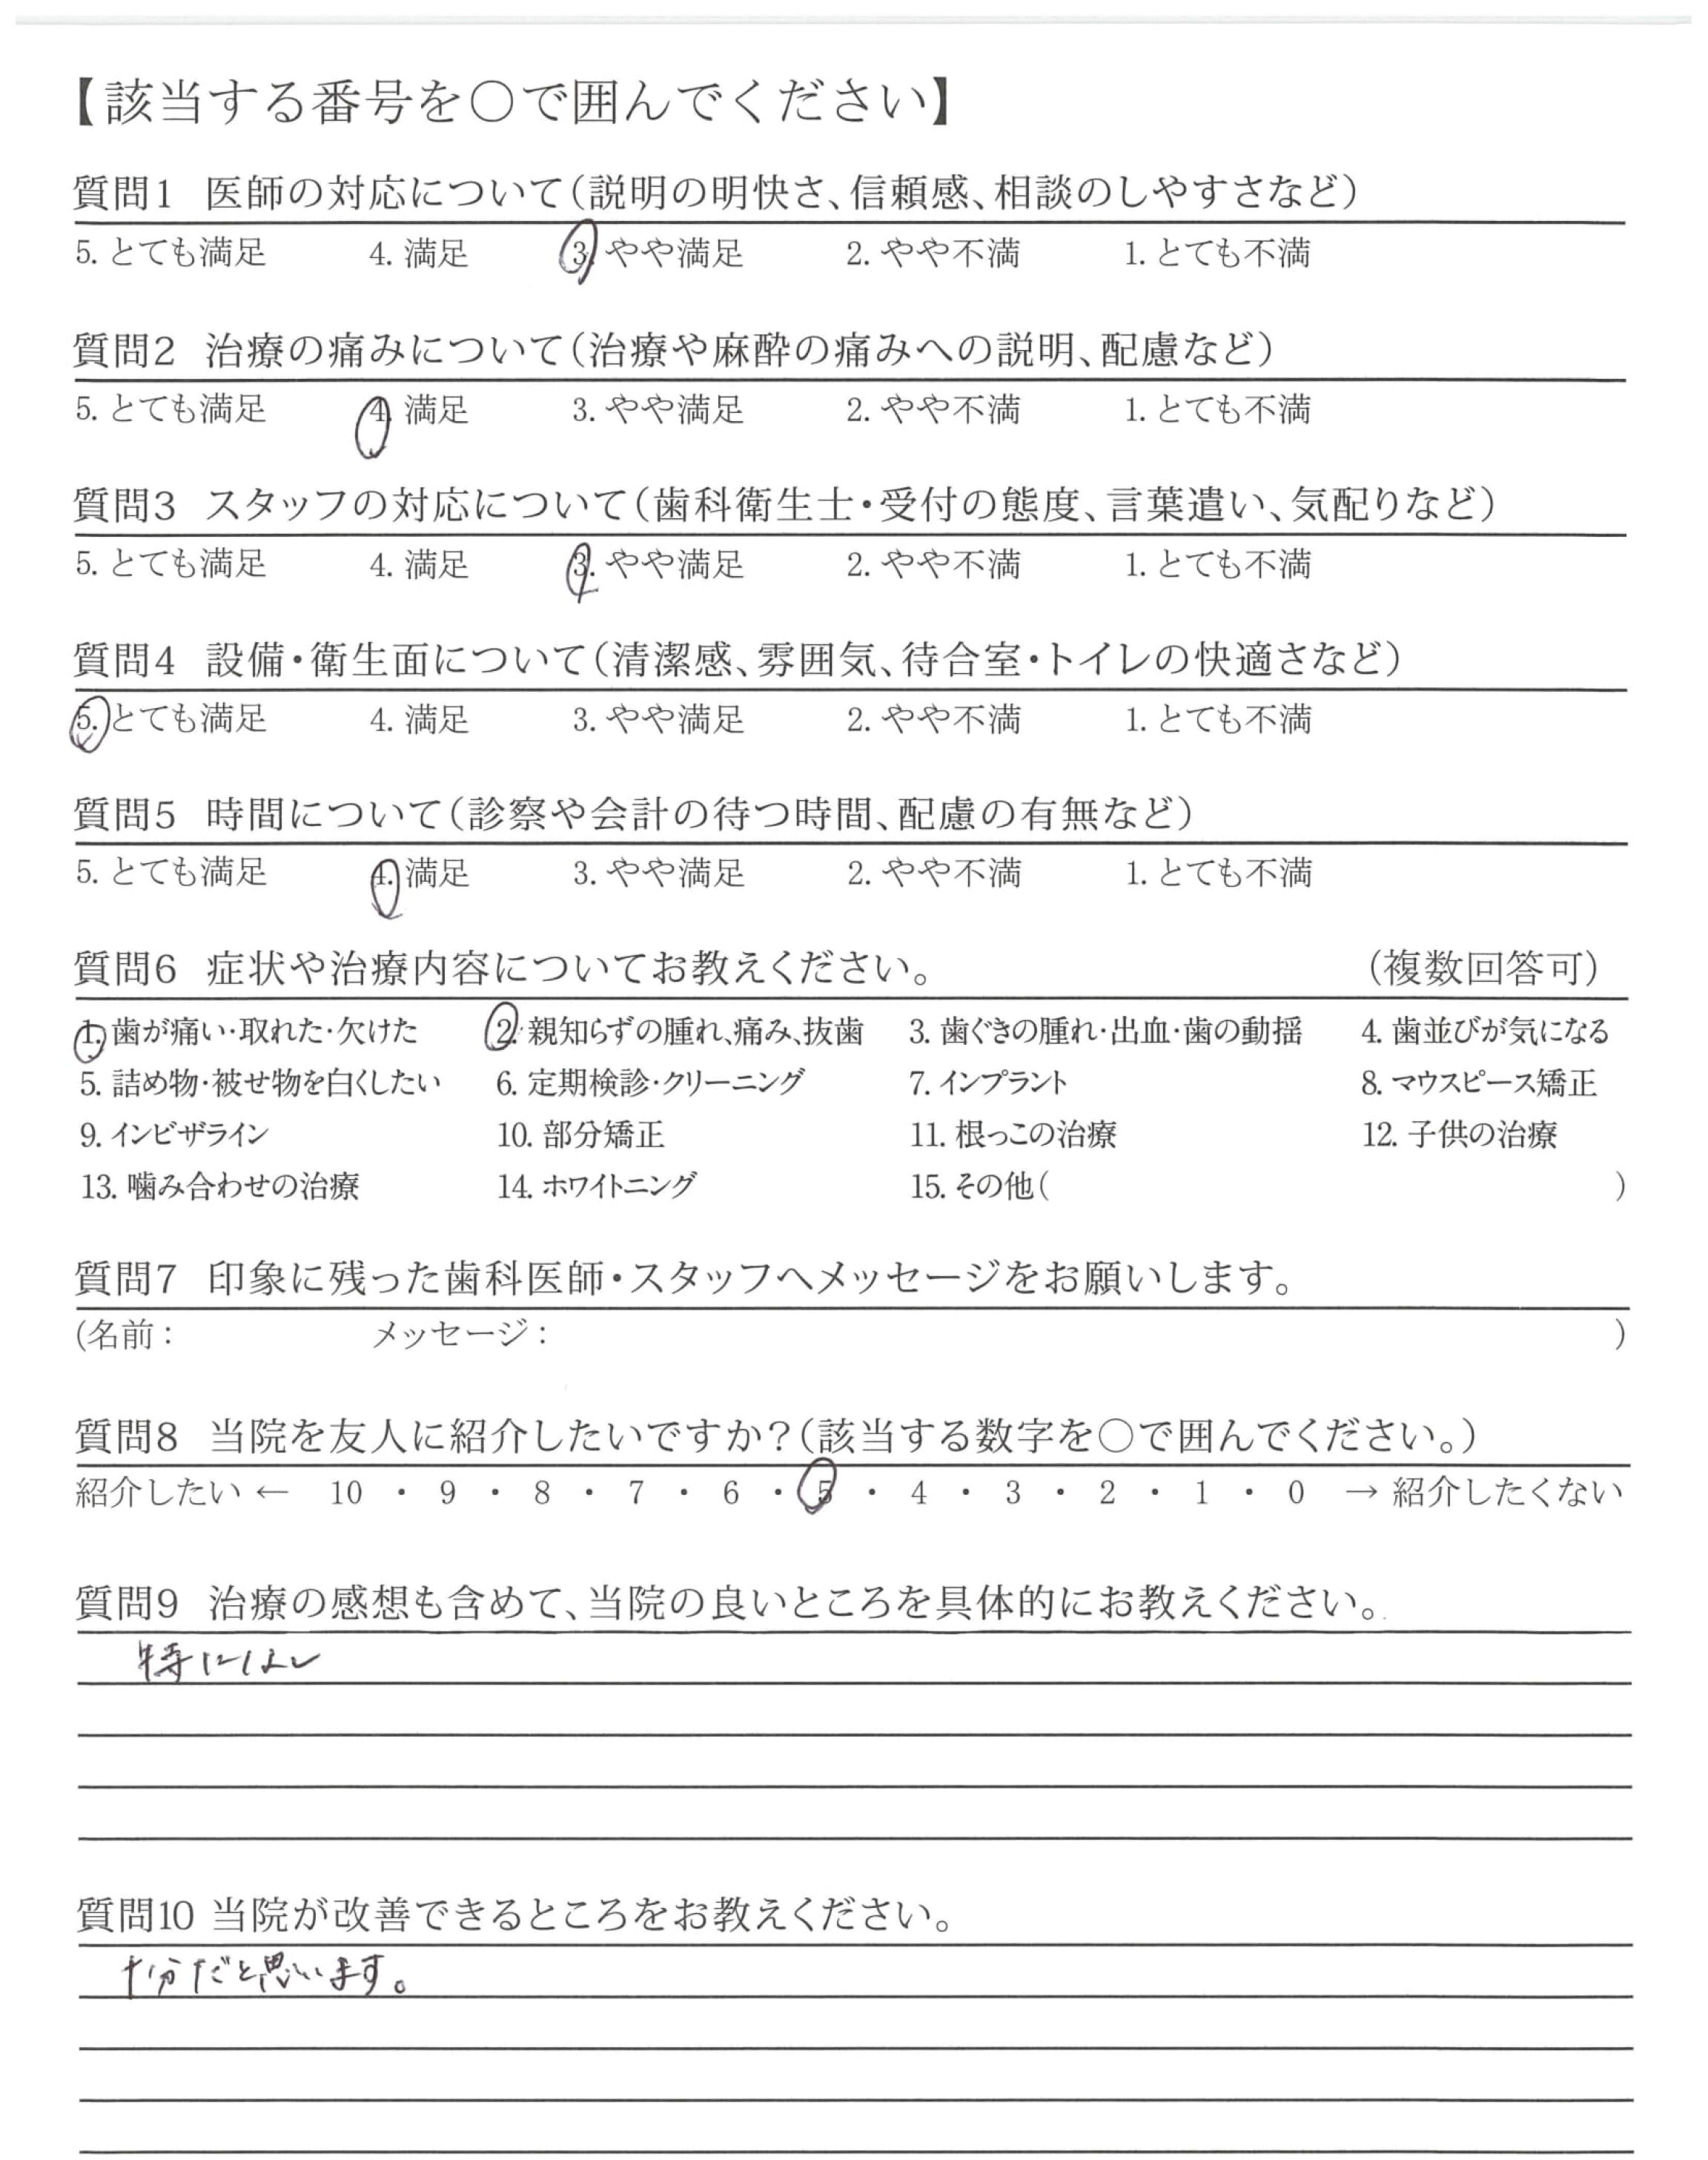 【該当する番号を○で囲んでください】
質問1 医師の対応について(説明の明快さ、信頼感、相談のしやすさなど)
5. とても満足 4. 満足 3. やや満足 2. やや不満 1. とても不満
質問2 治療の痛みについて(治療や麻酔の痛みへの説明、配慮など)
5. とても満足 4. 満足 3. やや満足 2. やや不満 1. とても不満
質問3 スタッフの対応について(歯科衛生士・受付の態度、言葉遣い、気配りなど)
5. とても満足 4. 満足 3. やや満足 2. やや不満 1. とても不満
質問4 設備・衛生面について(清潔感、雰囲気、待合室・トイレの快適さなど)
5. とても満足 4. 満足 3. やや満足 2. やや不満 1. とても不満
質問5 時間について(診察や会計の待つ時間、配慮の有無など)
5. とても満足 4. 満足 3. やや満足 2. やや不満 1. とても不満
質問6 症状や治療内容についてお教えください。 (複数回答可)
1. 歯が痛い・取れた・欠けた 2. 親知らずの腫れ、痛み、抜歯 3. 歯ぐきの腫れ・出血・歯の動揺 4. 歯並びが気になる
5. 詰め物・被せ物を白くしたい 6. 定期検診・クリーニング 7. インプラント 8. マウスピース矯正
9. インビザライン 10. 部分矯正 11. 根っこの治療 12. 子供の治療
13. 噛み合わせの治療 14. ホワイトニング 15. その他( )
質問7 印象に残った歯科医師・スタッフへメッセージをお願いします。
(名前: メッセージ: )
質問8 当院を友人に紹介したいですか?(該当する数字を○で囲んでください。)
紹介したい ← 10 ・ 9 ・ 8 ・ 7 ・ 6 ・ 5 ・ 4 ・ 3 ・ 2 ・ 1 ・ 0 → 紹介したくない
質問9 治療の感想も含めて、当院の良いところを具体的にお教えください。
特になし
質問10 当院が改善できるところをお教えください。
十分だと思います。